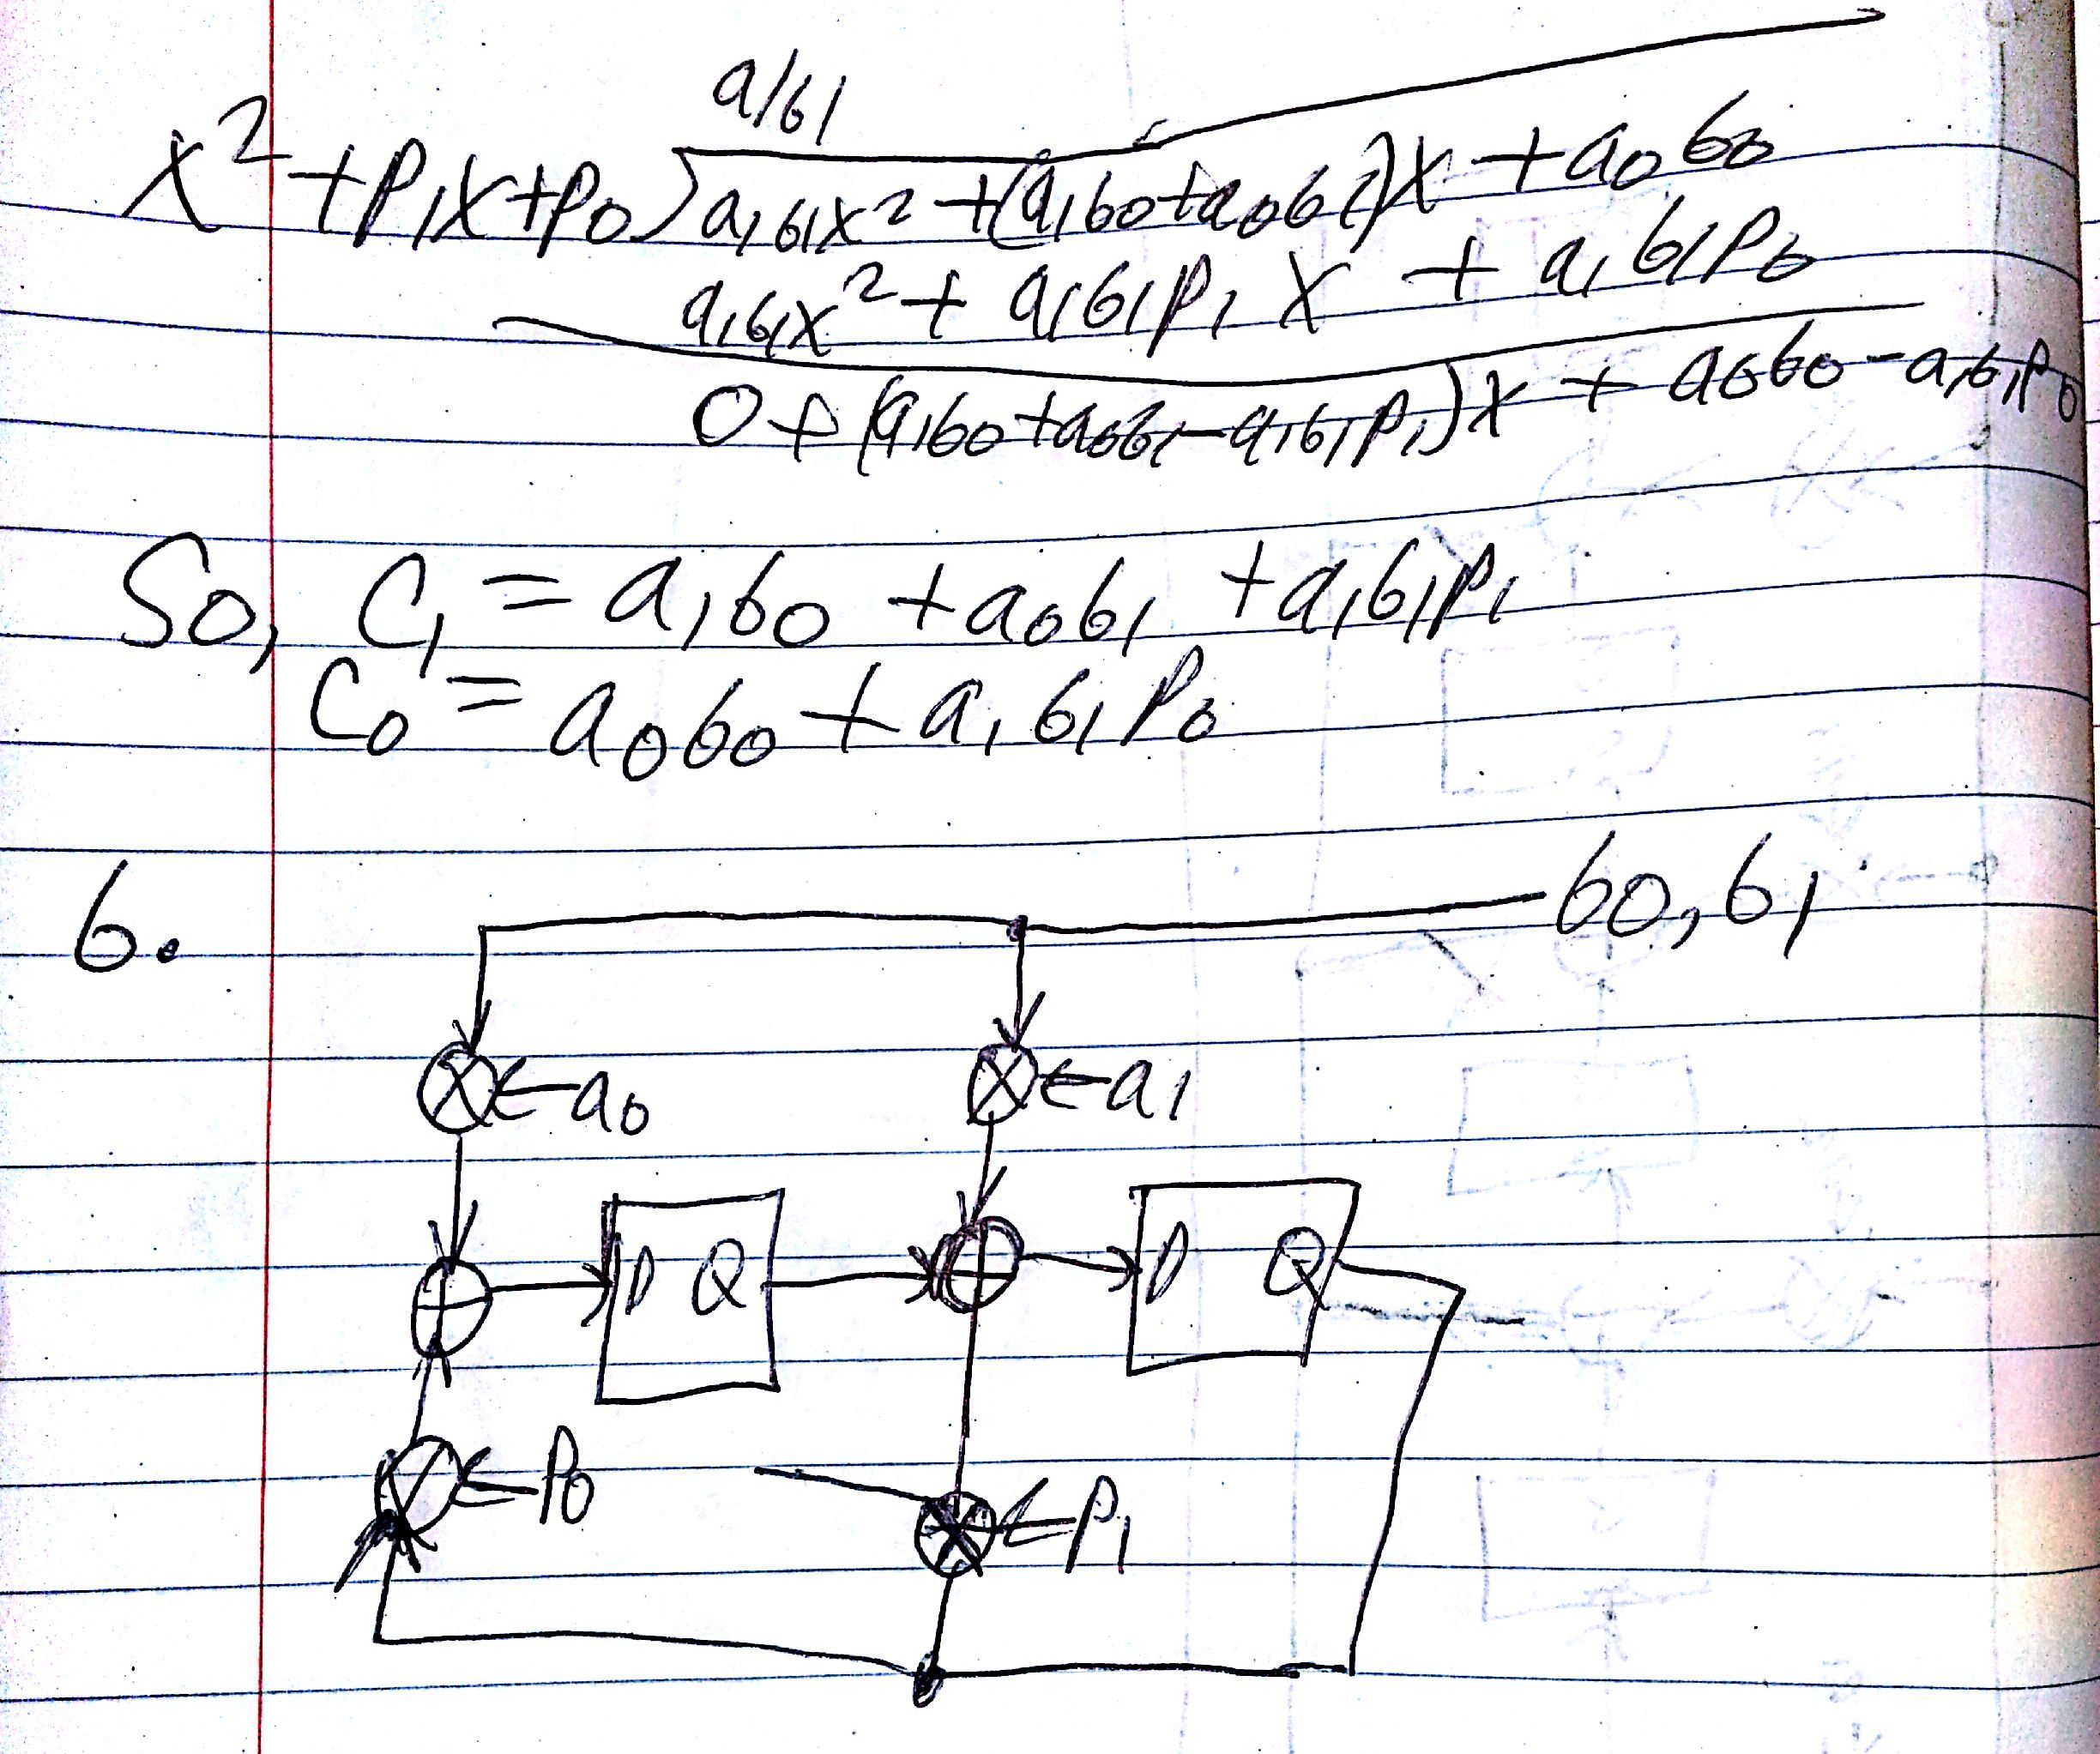 a1b1
x² + p₁x + p₀ ) a₁b₁x² + (a₁b₀ + a₀b₁)x + a₀b₀
a₁b₁x² + a₁b₁p₁x + a₁b₁p₀
0 + (a₁b₀ + a₀b₁ - a₁b₁p₁)x + a₀b₀ - a₁b₁p₀
So, C₁ = a₁b₀ + a₀b₁ + a₁b₁p₁
C₀ = a₀b₀ + a₁b₁p₀
6. b₀, b₁
← a₀ ← a₁
D Q D Q
← p₀ ← p₁